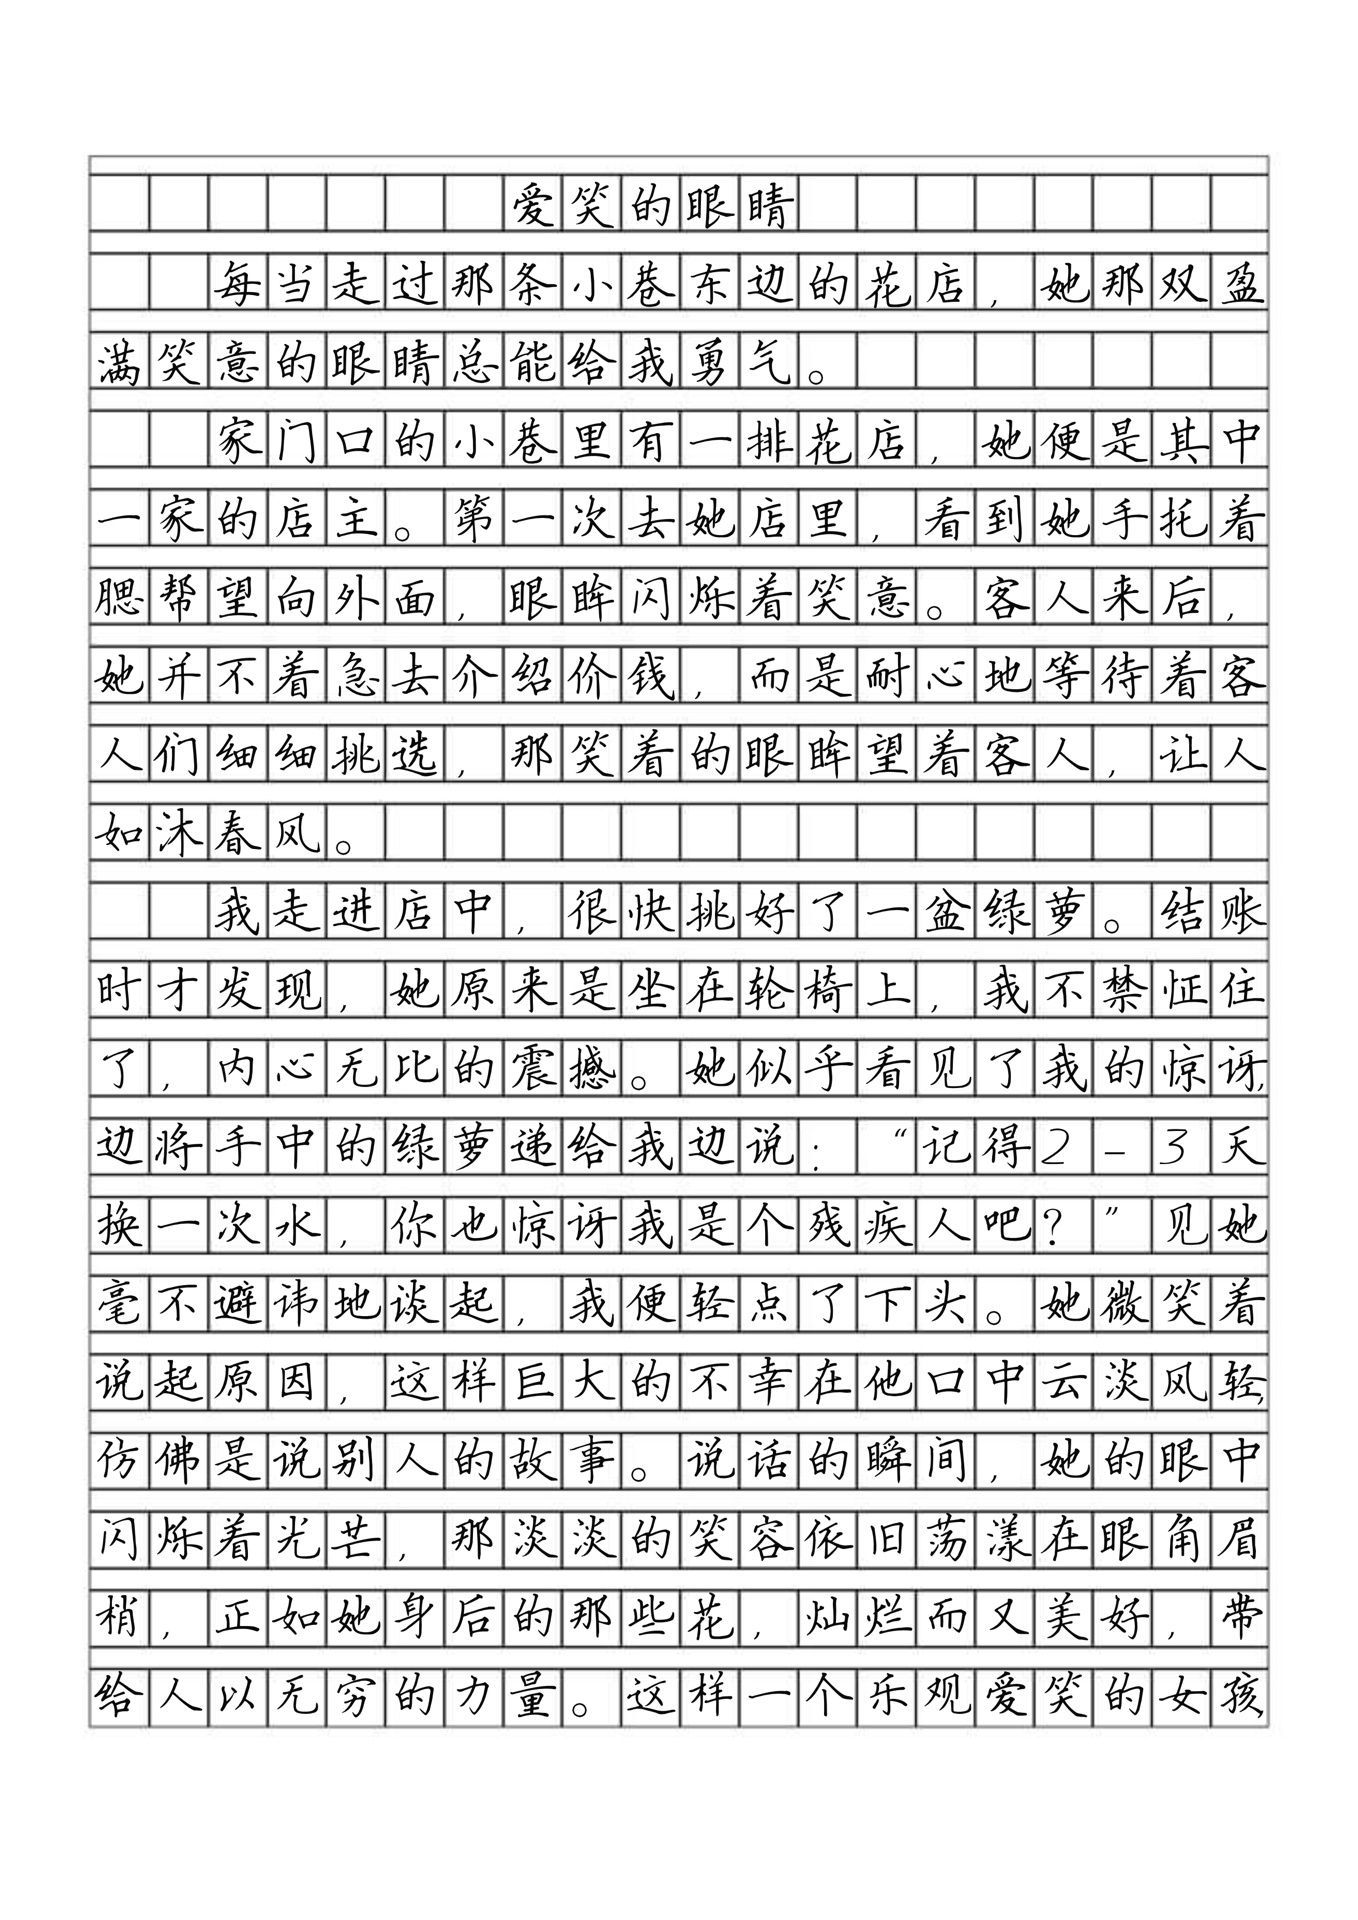 爱笑的眼睛
每当走过那条小巷东边的花店，她那双盈
满笑意的眼睛总能给我勇气。
家门口的小巷里有一排花店，她便是其中
一家的店主。第一次去她店里，看到她手托着
腮帮望向外面，眼眸闪烁着笑意。客人来后，
她并不着急去介绍价钱，而是耐心地等待着客
人们细细挑选，那笑着的眼眸望着客人，让人
如沐春风。
我走进店中，很快挑好了一盆绿萝。结账
时才发现，她原来是坐在轮椅上，我不禁怔住
了，内心无比的震撼。她似乎看见了我的惊讶，
边将手中的绿萝递给我边说：“记得2-3天
换一次水，你也惊讶我是个残疾人吧？”见她
毫不避讳地谈起，我便轻点了下头。她微笑着
说起原因，这样巨大的不幸在他口中云淡风轻，
仿佛是说别人的故事。说话的瞬间，她的眼中
闪烁着光芒，那淡淡的笑容依旧荡漾在眼角眉
梢，正如她身后的那些花，灿烂而又美好，带
给人以无穷的力量。这样一个乐观爱笑的女孩，